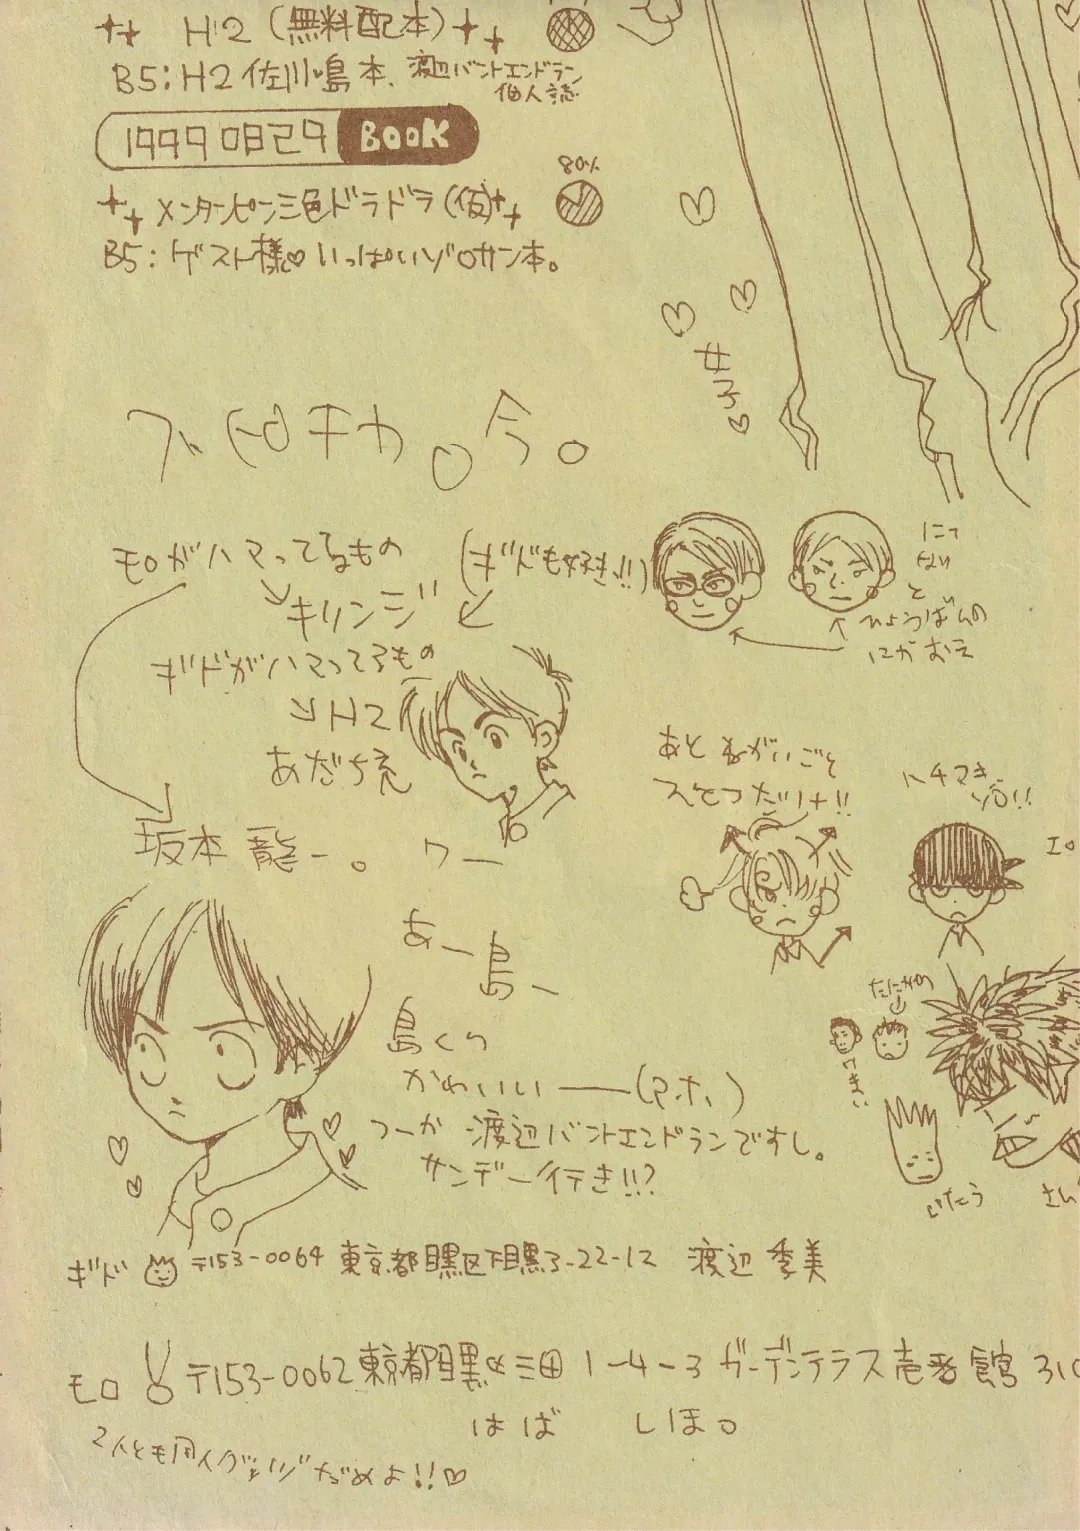 H2(無料配本)
B5:H2 佐川・島本、渡辺バントエンドラン
個人誌
19990829 BOOK
80%
メンタンピン三色ドラドラ(仮)
B5:ゲスト様♡いっぱいゾロサン本。
女子♡
今。
モロがハマってるもの
(ギドも好き!!)
キリンジ
ギドがハマってるもの
H2
あだち充
坂本龍一。
ワー
にて
ないと
ひょうばんの
にがおえ
あとねがいごと
ひとつだけ!!
ハチマキ
ゾロ!!
エロ
あー島、
島くん
かわいいー(アホ)
つーか 渡辺バントエンドランですし。
サンデー行き!!?
たにがわ
さん
ギド 〒153-0064 東京都目黒区下目黒3-22-12 渡辺 季美
モロ 〒153-0062 東京都目黒区三田1-4-3 ガーデンテラス壱番館 310
はば しほ。
2人とも同人グッズだめよ!!♡